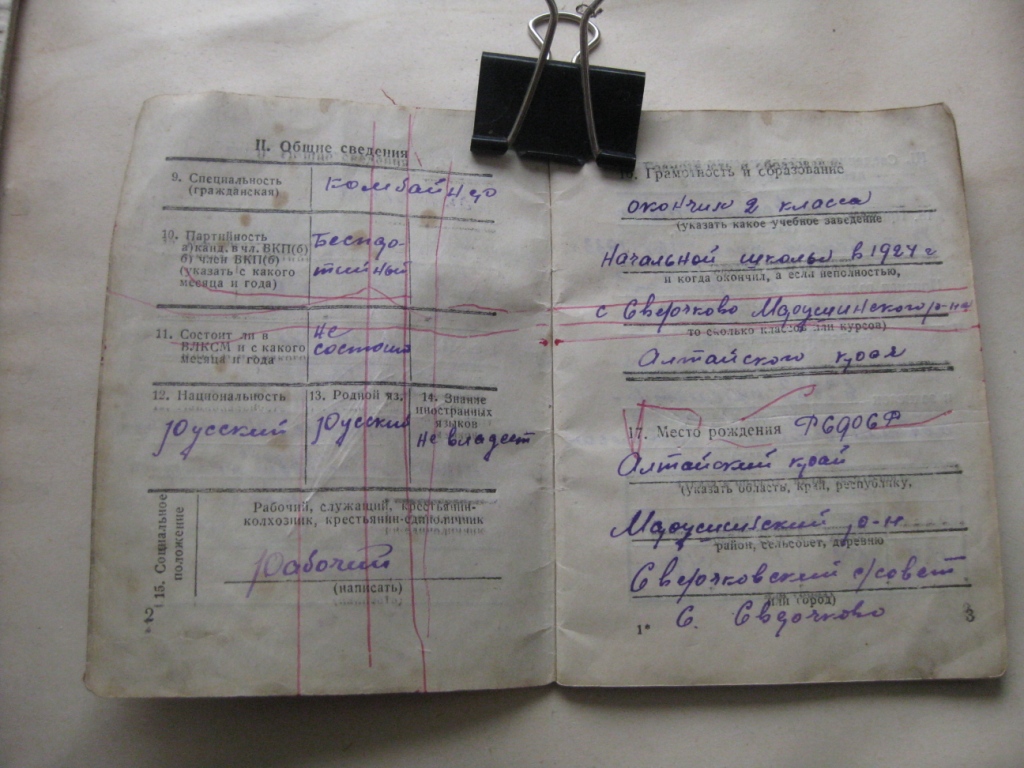 II. Общие сведения
9. Специальность
(гражданская)
Комбайнер
10. Партийность
а) канд. в чл. ВКП(б)
б) член ВКП(б)
(указать с какого
месяца и года)
Беспар-
тийный
11. Состоит ли в
ВЛКСМ и с какого
месяца и года
Не
состоит
12. Национальность
Русский
13. Родной яз.
Русский
14. Знание
иностранных
языков
не владеет
15. Социальное
положение
Рабочий, служащий, крестьянин-
колхозник, крестьянин-единоличник
Рабочий
(написать)
2
Грамотность и образование
окончил 2 класса
(указать какое учебное заведение
Начальной школы в 1924 г
и когда окончил, а если неполностью,
с Сверчково Марушинского р-на
то сколько классов или курсов)
Алтайского края
17. Место рождения
Алтайский край
(указать область, край, республику,
Марушинский р-н
район, сельсовет, деревню
Сверчковский с/совет
или город)
С. Сверчково
1*
3